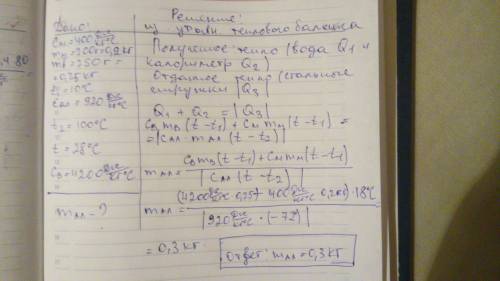 Дано:
cм=400 Дж/кг°C
mм=200г=0,2кг
mв=250г=
=0,25кг
t1=10°C
cал=920 Дж/кг°C
t2=100°C
t=28°C
cв=4200 Дж/кг°C
mал-?
Решение:
из ур-ния теплового баланса
Полученое тепло (вода Q1 и
калориметр Q2)
Отданное тепло (стальные
стружки |Q3|
Q1 + Q2 = |Q3|
cвmв(t-t1)+cмmм(t-t1) =
=|cал·mал(t-t2)|
mал= cвmв(t-t1)+cмmм(t-t1) / |cал(t-t2)|
mал= (4200 Дж/кг°C·0,25+400 Дж/кг°C·0,2кг)·18°C / |920 Дж/кг°C·(-72)|
=0,3кг
Ответ: mал=0,3кг